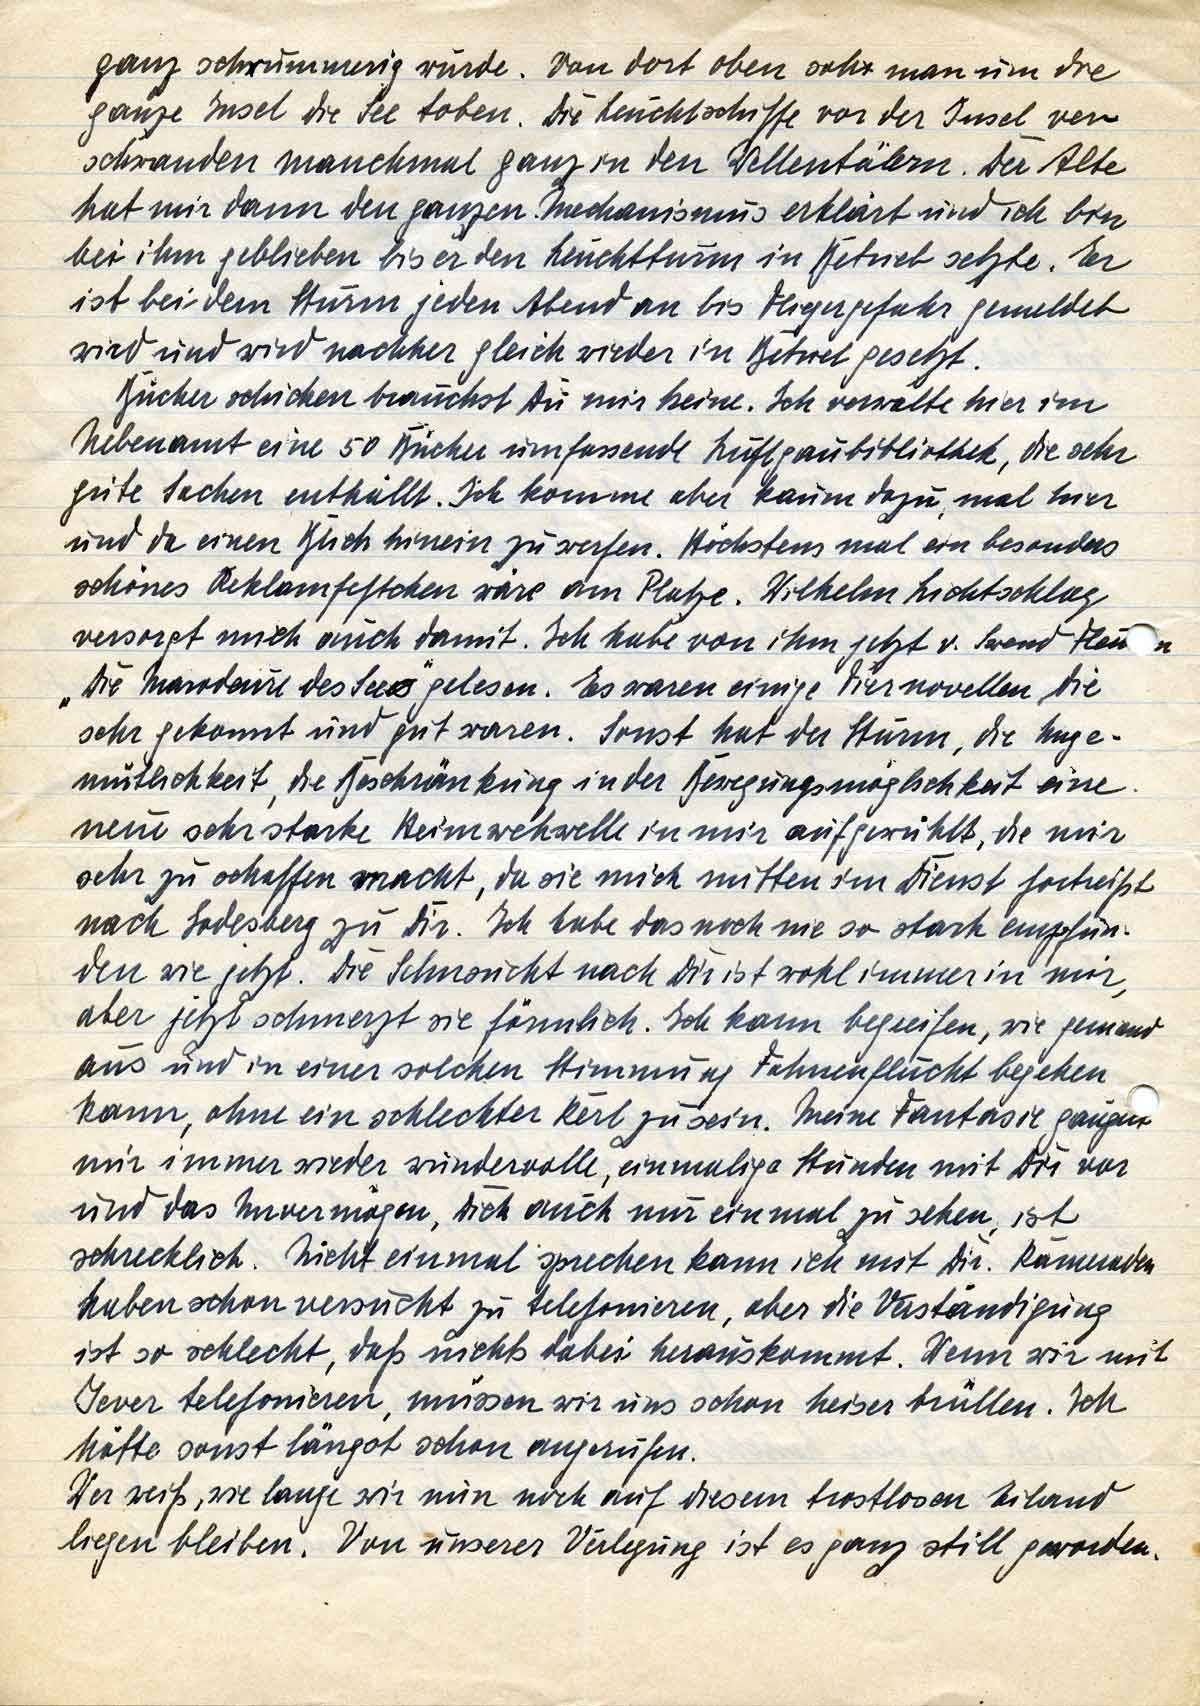 ganz schwummerig wurde. Von dort oben sah man um die
ganze Insel die See toben. Die Leuchtschiffe vor der Insel ver-
schwanden manchmal ganz in den Wellentälern. Der Alte
hat mir dann den ganzen Mechanismus erklärt und ich bin
bei ihm geblieben bis er den Leuchtturm in Betrieb setzte. Er
ist bei dem Sturm jeden Abend an bis Fliegergefahr gemeldet
wird und wird nachher gleich wieder in Betrieb gesetzt.
Bücher schicken brauchst Du mir keine. Ich verwalte hier im
Nebenamt eine 50 Bücher umfassende Luftgaubibliothek, die sehr
gute Sachen enthält. Ich komme aber kaum dazu, mal hier
und da einen Blick hinein zu werfen. Höchstens mal ein besonders
schönes Reklamheftchen wäre am Platze. Wilhelm Lichtschlag
versorgt mich auch damit. Ich habe von ihm jetzt v. Svend
„Die Marodeure des Sees" gelesen. Es waren einige Tiernovellen die
sehr gekonnt und gut waren. Sonst hat der Sturm, die Unge-
mütlichkeit, die Beschränkung in der Bewegungsmöglichkeit eine
neue sehr starke Heimwehwelle in mir aufgewühlt, die mir
sehr zu schaffen macht, da sie mich mitten im Dienst fortreißt
nach Godesberg zu Dir. Ich habe das noch nie so stark empfun-
den wie jetzt. Die Sehnsucht nach Dir ist wohl immer in mir,
aber jetzt schmerzt sie förmlich. Ich kann begreifen, wie jemand
aus und in einer solchen Stimmung Fahnenflucht begehen
kann, ohne ein schlechter Kerl zu sein. Meine Fantasie
mir immer wieder wundervolle, einmalige Stunden mit Dir vor
und das Unvermögen, Dich auch nur einmal zu sehen, ist
schrecklich. Nicht einmal sprechen kann ich mit Dir. Kameraden
haben schon versucht zu telefonieren, aber die Verständigung
ist so schlecht, daß nichts dabei herauskommt. Wenn wir mit
Jever telefonieren, müssen wir uns schon heiser brüllen. Ich
hätte sonst längst schon angerufen.
Wer weiß, wie lange wir nun noch auf diesem trostlosen Eiland
liegen bleiben. Von unserer Verlegung ist es ganz still geworden.